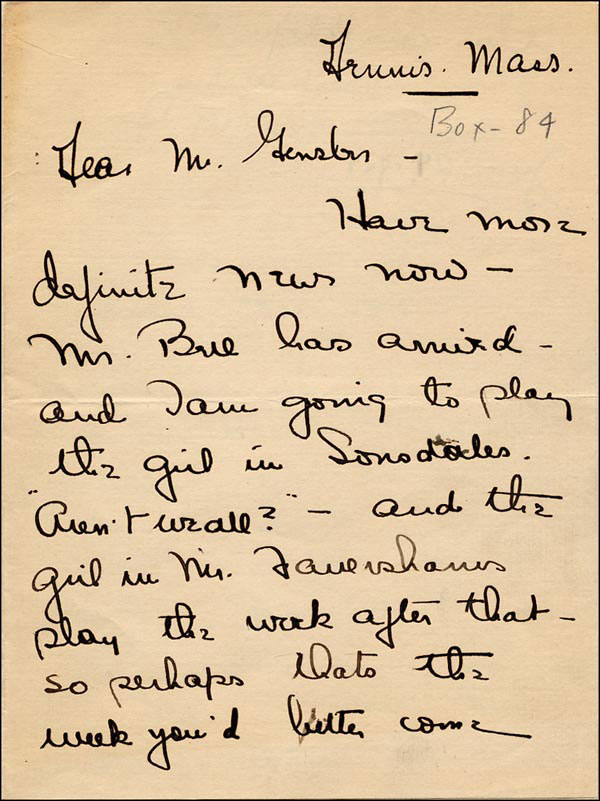 Dennis. Mass.
Box-84
Dear Mr.
Have more
definite news now -
Mr. has arrived -
and I am going to play
the girl in Lonsdales.
"Aren't we all?" - and the
girl in Mr. Favershams
play the week after that -
so perhaps thats the
week you'd better come